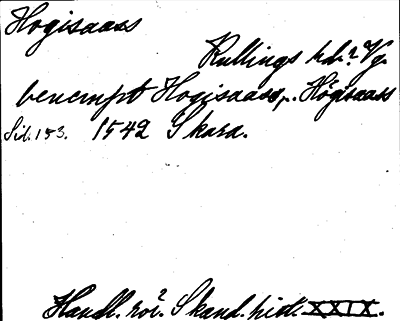 Hogisaass
Kullings hd? Vg.
benempt Hogisaass, .. Högisaass
Sid. 153. 1542 Skara.
Handl. rör? Skand. hist. XXIX.